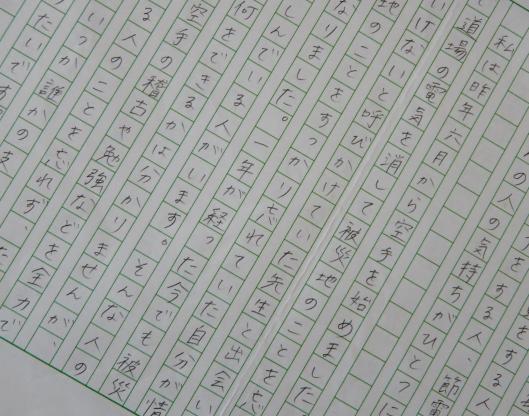 をする人
をする人、節電
の人の気持ちがひとつに
私は昨年六月から空手を始めました
道場の電気を消して被災地のことを忘
いけないと呼びかけていた先生と出会い
地のことをすっかり忘れていた自分が情
なりました。一年が経った今でも被災
しんでいる人がいます。そんな人の
何をできるかは分かりませんが、
空手の稽古や勉強などを全力で
る人のことを忘れず、
いつか誰かの支
たいです